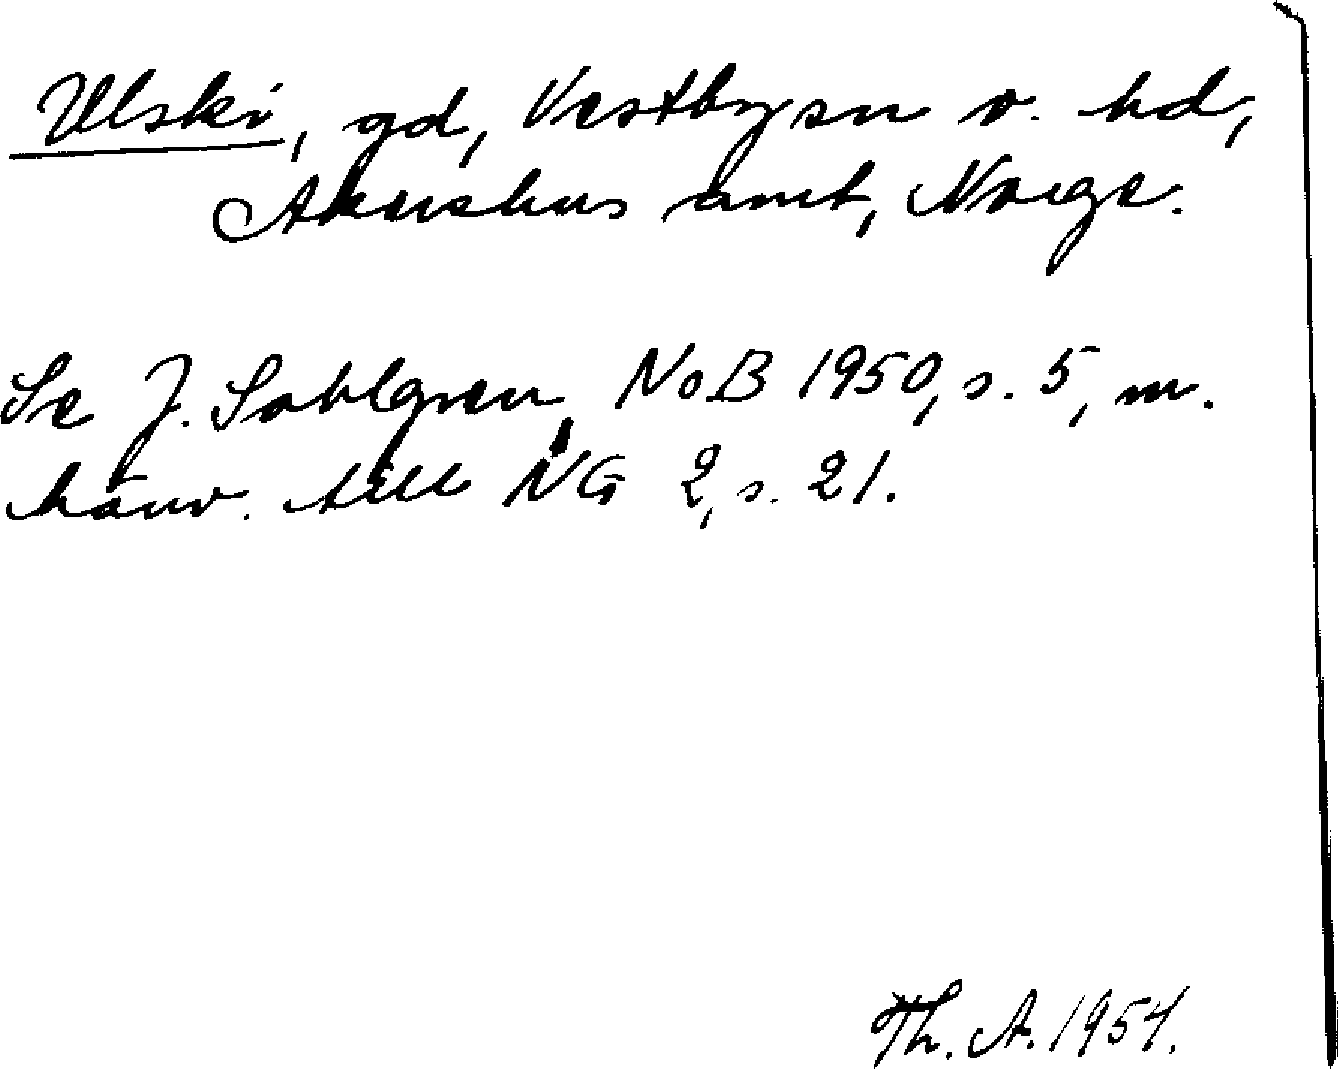 Ulski, gd, Vestbysn o. hd,
Akershus amt, Norge.
Se J. Sahlgren, NoB 1950, s. 5, m.
hänv. till NG 2, s. 21.
Th. A. 1954.